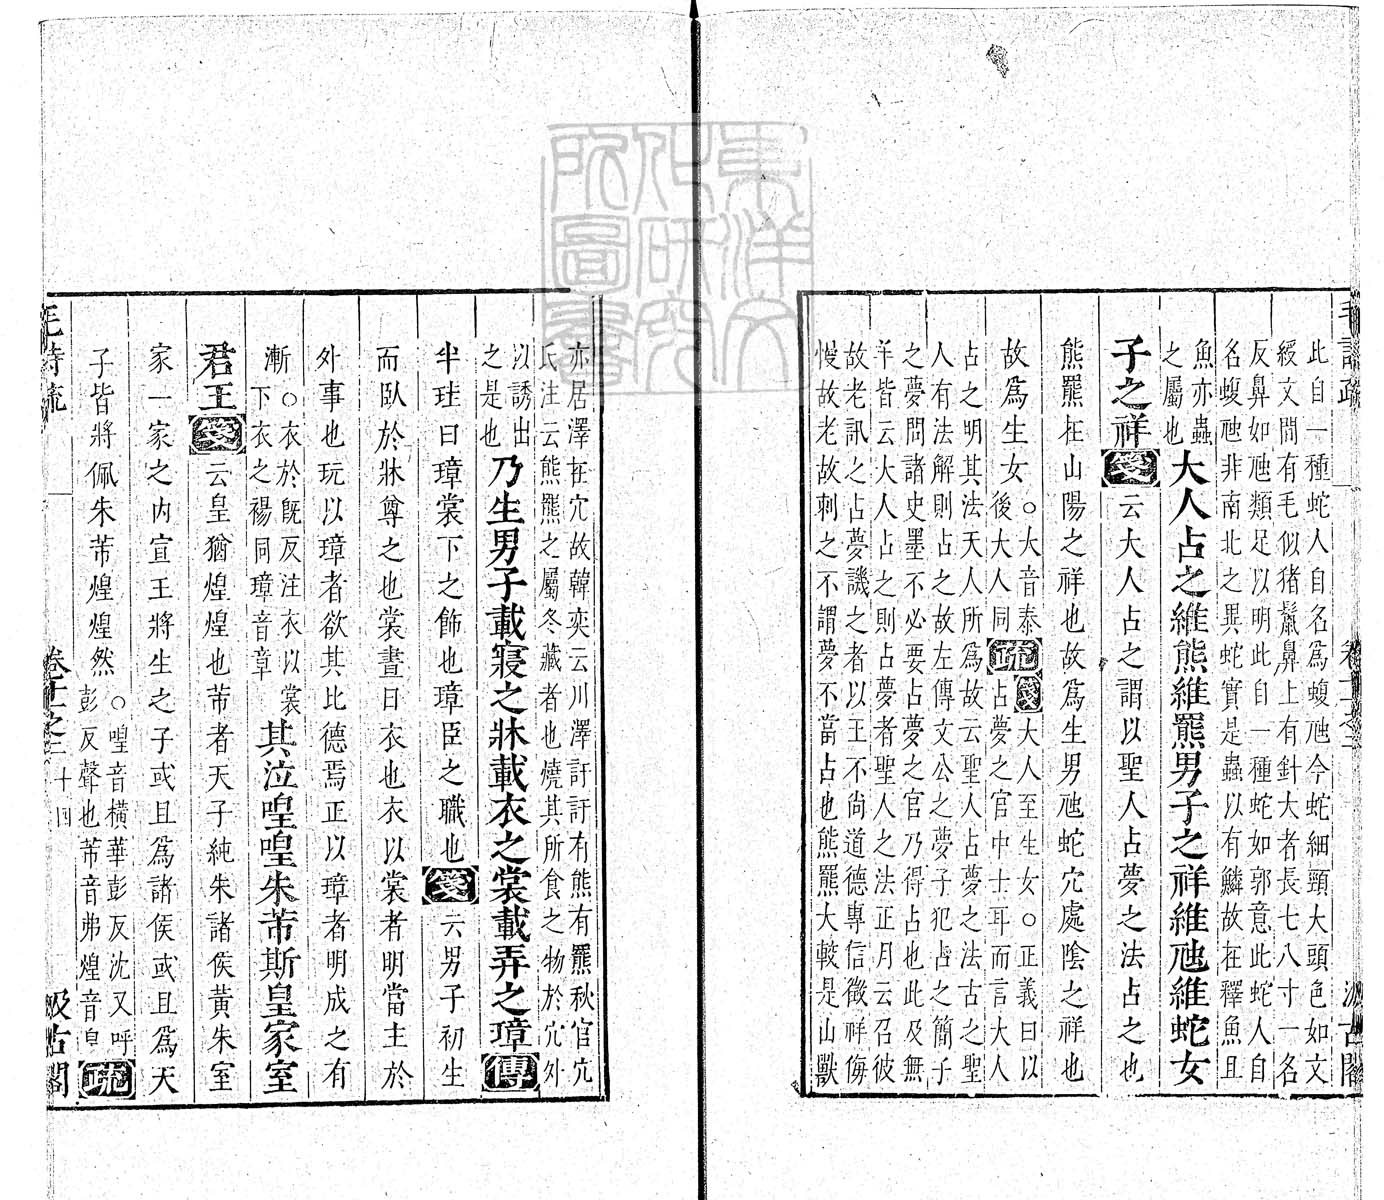 毛詩疏
卷十一之二
汲古閣
此自一種蛇人自名爲蝮虺今蛇細頸大頭色如文
綬文間有毛似猪鬣鼻上有針大者長七八寸一名
反鼻如虺類足以明此自一種蛇如郭意此蛇人自
名蝮虺非南北之異蛇實是蟲以有鱗故在釋魚且
魚亦蟲
之屬也
大人占之維熊維羆男子之祥維虺維蛇女
子之祥箋云大人占之謂以聖人占夢之法占之也
熊羆在山陽之祥也故爲生男虺蛇穴處陰之祥也
故爲生女
○大音泰
後大人同
疏
箋大人至生女○正義曰以
占夢之官中士耳而言大人
占之明其法天人所爲故云聖人占夢之法古之聖
人有法解則占之故左傳文公之夢子犯占之簡子
之夢問諸史墨不必要占夢之官乃得占也此及無
羊皆云大人占之則占夢者聖人之法正月云召彼
故老訊之占夢譏之者以王不尚道德專信徵祥侮
慢故老故刺之不謂夢不當占也熊羆大較是山獸
亦居澤在穴故韓奕云川澤訏訏有熊有羆秋官穴
氏注云熊羆之屬冬藏者也燒其所食之物於穴外
以誘出
之是也
乃生男子載寢之牀載衣之裳載弄之璋傳
半珪曰璋裳下之飾也璋臣之職也箋云男子初生
而臥於牀尊之也裳晝日衣也衣以裳者明當主於
外事也玩以璋者欲其比德焉正以璋者明成之有
漸
○衣於既反注衣以裳
下衣之裼同璋音章
其泣喤喤朱芾斯皇家室
君王箋云皇猶煌煌也芾者天子純朱諸侯黃朱室
家一家之內宣王將生之子或且爲諸侯或且爲天
子皆將佩朱芾煌煌然
○喤音橫華彭反沈又呼
彭反聲也芾音弗煌音皇
疏
毛詩疏
卷十一之二
十四
汲古閣
東洋文
化研究
所圖書